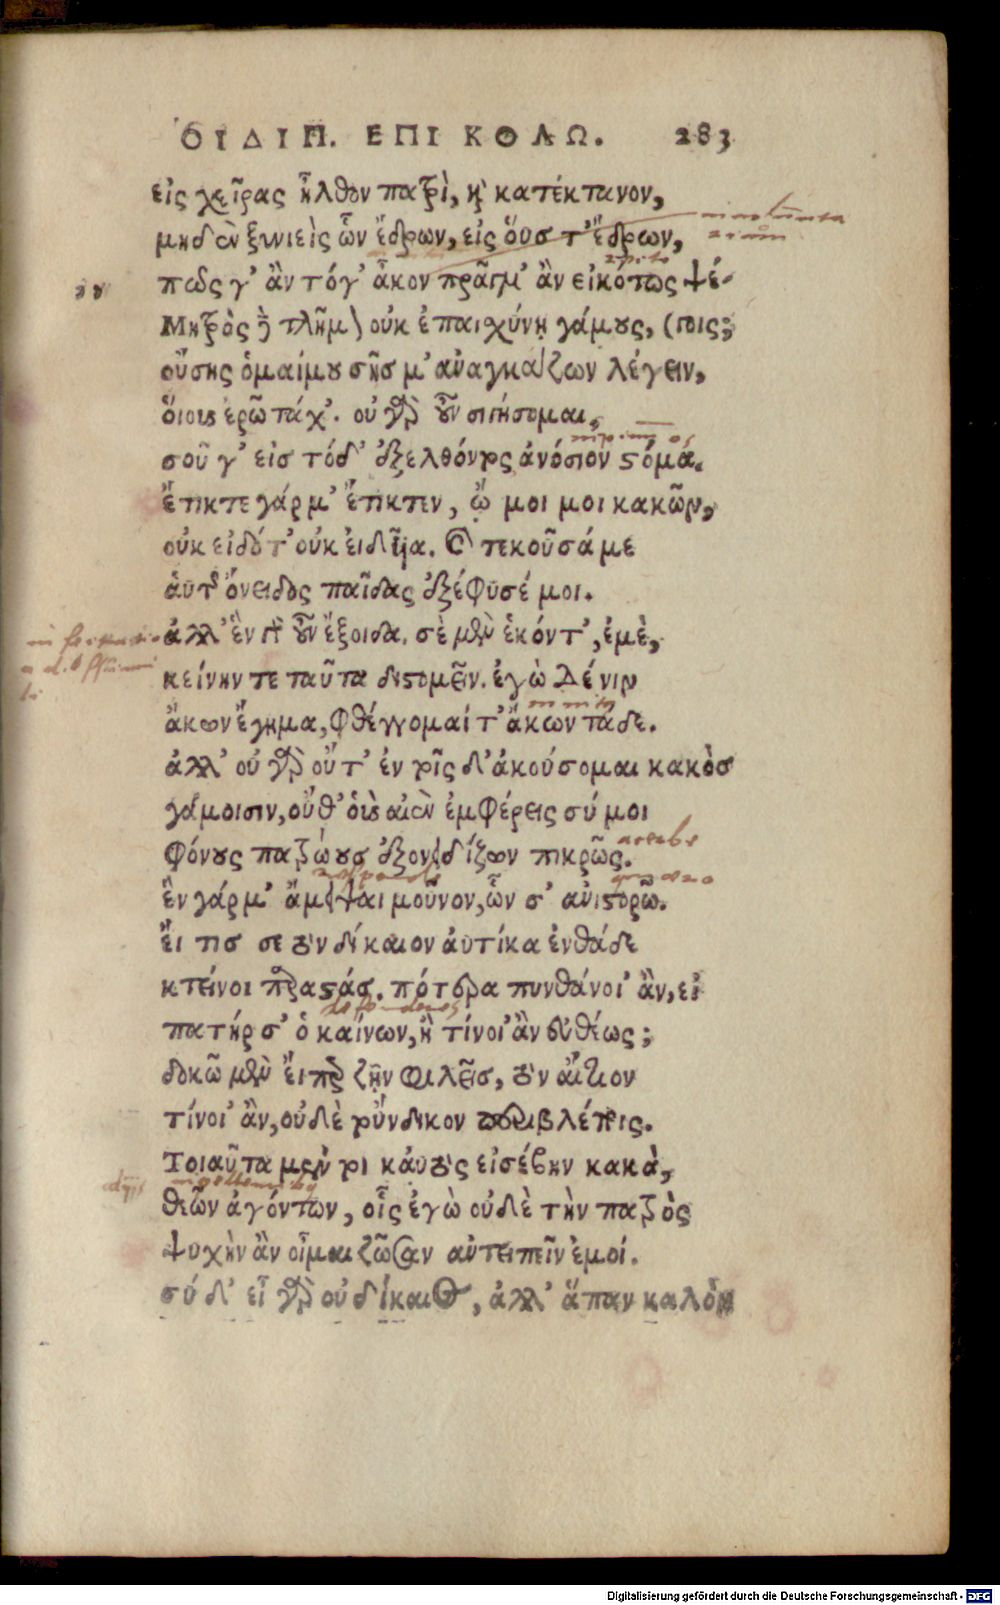 ὈΙΔΙΠ. ΕΠΙ ΚΟΛΩ. 283
εἰς χεῖρας ἦλθον πατρὶ, καὶ κατέκτανον,
μηδὲν ξυνιεὶς ὧν ἔδρων, εἰς οὕσ τ' ἔδρων,
πῶς γ' ἂν τόγ' ἆκον πρᾶγμ' ἂν εἰκότως ψέ-
Μητρὸς δὲ τλῆμον οὐκ ἐπαισχύνῃ γάμους, (γοις;
οὔσης ὁμαίμου σῆσ μ' ἀναγκάζων λέγειν,
ὅιους ἐρῶ τάχ'. οὐ γὰρ οὖν σιγήσομαι,
σοῦ γ' εἰσ τόδ' ἐξελθόντος ἀνόσιον στόμα.
ἔτικτε γάρ μ' ἔτικτεν, ᾤ μοι μοι κακῶν,
οὐκ εἰδότ' οὐκ ἐιδῦα. καὶ τεκοῦσά με
αὑτῆς ὄνειδος παῖδας ἐξέφυσέ μοι.
ἀλλ' ἓν γὰρ οὖν ἔξοιδα. σὲ μὲν ἑκόντ', ἐμὲ,
κείνην τε ταῦτα δυστομεῖν. ἐγὼ δέ νιν
ἄκων ἔγημα, φθέγγομαί τ' ἄκων τάδε.
ἀλλ' οὐ γὰρ οὔτ' ἐν τοῖς δ' ἀκούσομαι κακὸσ
γάμοισιν, οὔθ' ὁὺς αἰὲν ἐμφέρεις σύ μοι
φόνους πατρῴουσ ἐξονειδίζων πικρῶς.
ἓν γάρ μ' ἄμειψαι μοῦνον, ὧν σ' ἀνιστορῶ.
ἔι τισ σε τὸν δίκαιον ἀυτίκα ἐνθάδε
κτείνοι παραστάσ. πότερα πυνθάνοι' ἂν, εἰ
πατήρ σ' ὁ καίνων, ἢ τίνοι' ἂν εὐθέως;
δοκῶ μὲν ἔιπερ ζῆν φιλεῖσ, τὸν αἴτιον
τίνοι' ἂν, οὐδὲ τοὔνδικον περιβλέποις.
Τοιαῦτα μέν τοι κἀυτὸς εἰσέβην κακὰ,
θεῶν ἀγόντων, οἷς ἐγὼ οὐδὲ τὴν πατρὸς
ψυχὴν ἂν οἶμαι ζῶσαν ἀντειπεῖν ἐμοί.
σύ δ' εἶ γὰρ οὐ δίκαιος, ἀλλ' ἅπαν καλὸν
Digitalisierung gefördert durch die Deutsche Forschungsgemeinschaft - DFG